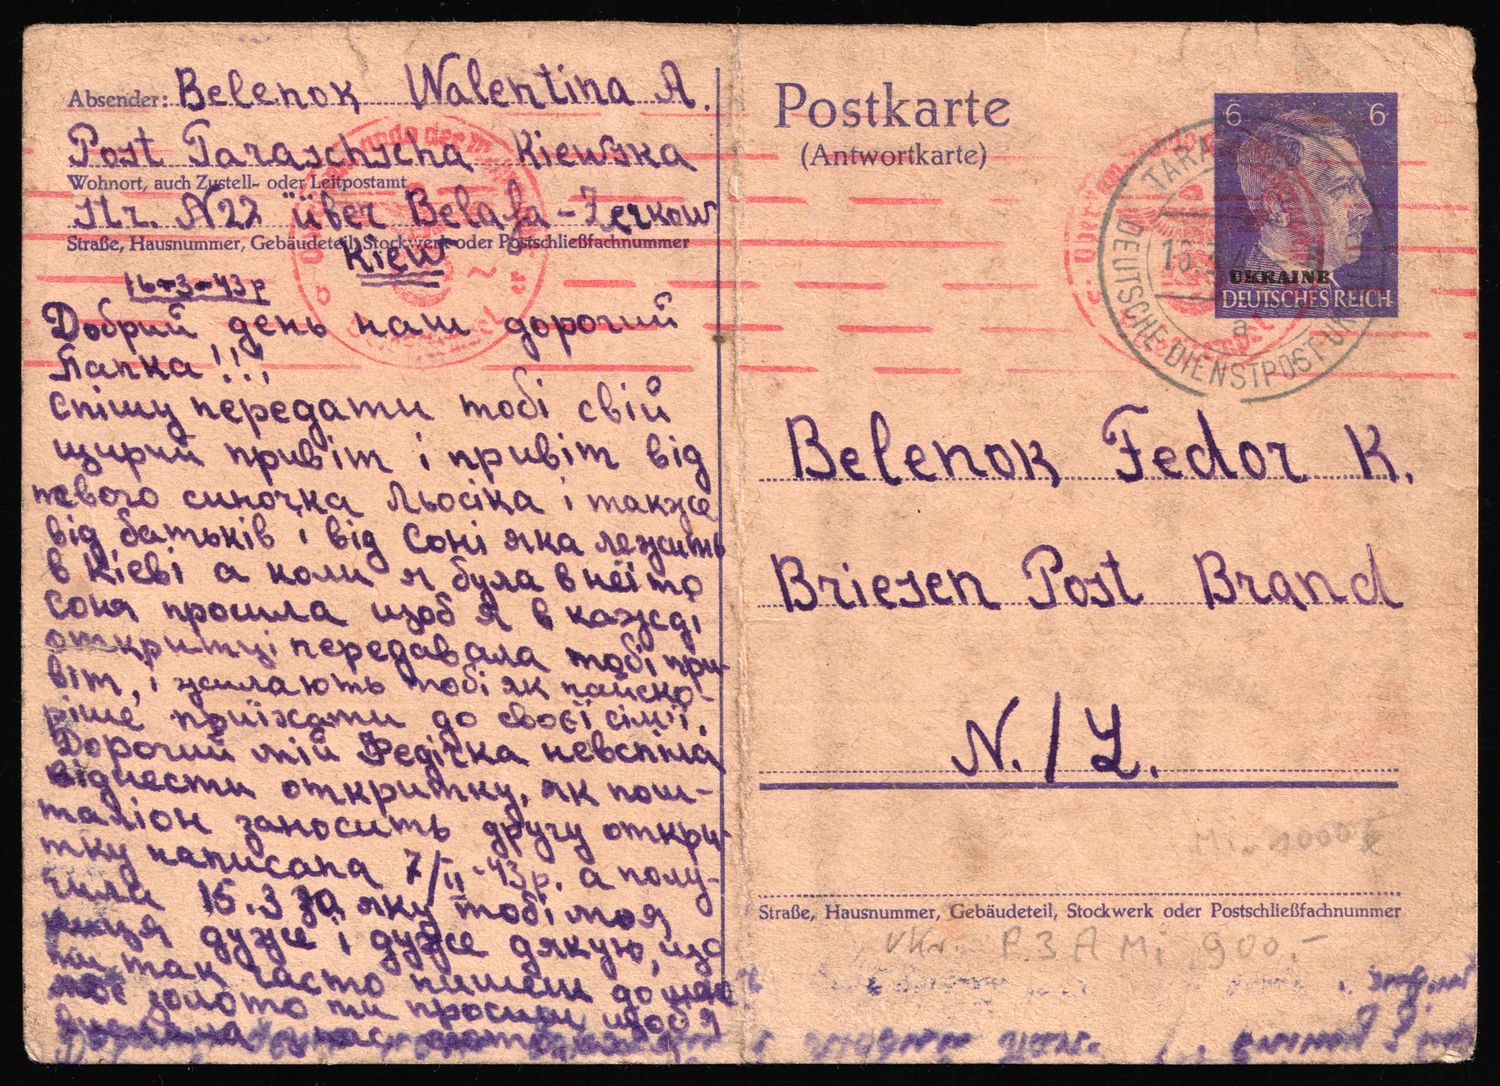 Absender: Belenok Walentina A.
Post Taraschtscha Kiewska
Wohnort, auch Zustell- oder Leitpostamt
Str. N22 über Belaja-Zerkow
Straße, Hausnummer, Gebäudeteil, Stockwerk oder Postschließfachnummer
Kiew
16-3-43р
Добрий день наш дорогий
Папка!!!
спішу передати тобі свій
щирий привіт і привіт від
твого синочка Льосіка і также
від батьків і від Соні яка лежить
в Кієві а коли я була в неї то
Соня просила щоб я в кажді
откритці передавала тобі при-
віт, і жилають тобі як найско-
ріше приїждати до своєї сімії.
Дорогий мій Федічка невспіла
віднести откритку, як пош-
таліон заносить другу откри-
тку написана 7/II-43р. а полу-
чила 15.3 за яку тобі моя
дуже і дуже дякую, що
ти так часто пишеш до
моє золото ти просиш щоб я
Postkarte
(Antwortkarte)
6 6
UKRAINE
DEUTSCHES REICH
DEUTSCHE DIENSTPOST
a
Belenok Fedor K.
Briesen Post Brand
N./L.
Mi. 1000
Straße, Hausnummer, Gebäudeteil, Stockwerk oder Postschließfachnummer
Ukr. P3A Mi 900.-